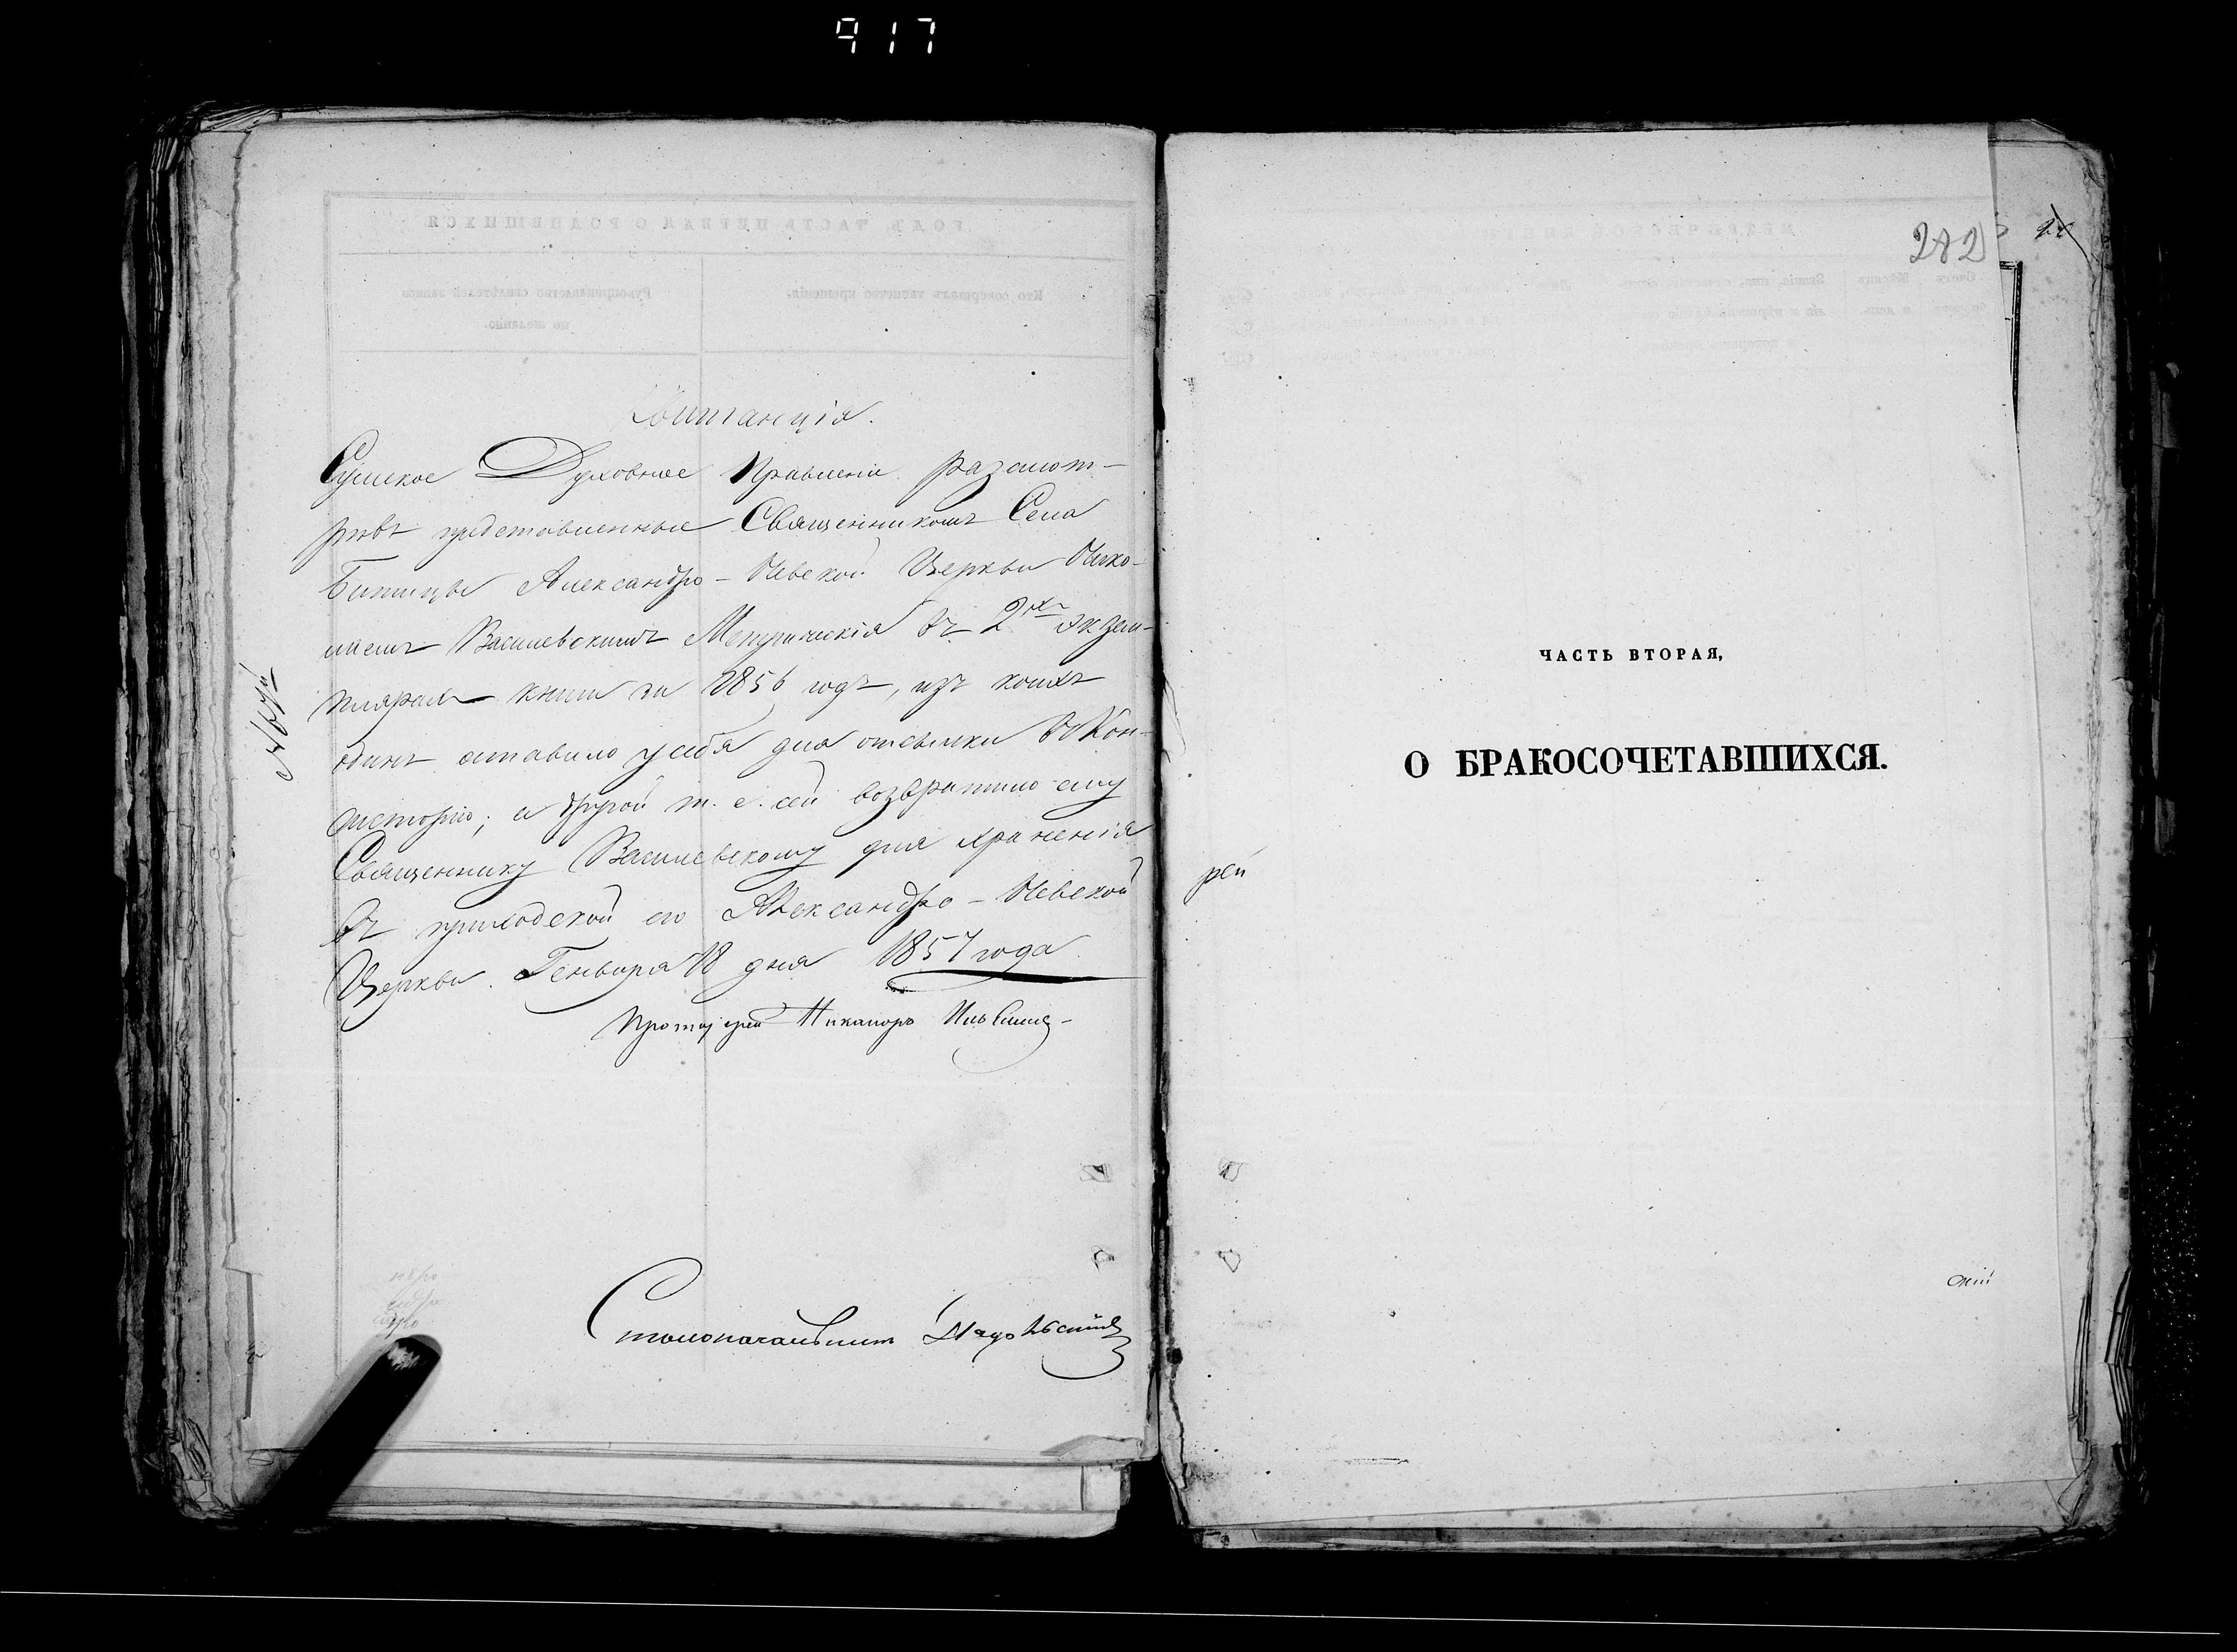 917
Квитанція.
Сумское Духовное Правленіе разсмот-
рѣвъ представленные Священникомъ Села
Битицы Александро-Невской Церкви Нико-
лаемъ Василевскимъ Метрическія въ 2хъ экзем-
плярахъ книги за 1856 годъ, изъ коихъ
одинъ оставило у себя для отсылки въ Кон-
систорію; а другой т. е. сей возвратило ему
Священнику Василевскому для храненія
въ приходской его Александро-Невской
Церкви. Генваря 18 дня 1857 года.
Протоіерей Никаноръ
Столоначальникъ
282
ЧАСТЬ ВТОРАЯ,
О БРАКОСОЧЕТАВШИХСЯ.
рей